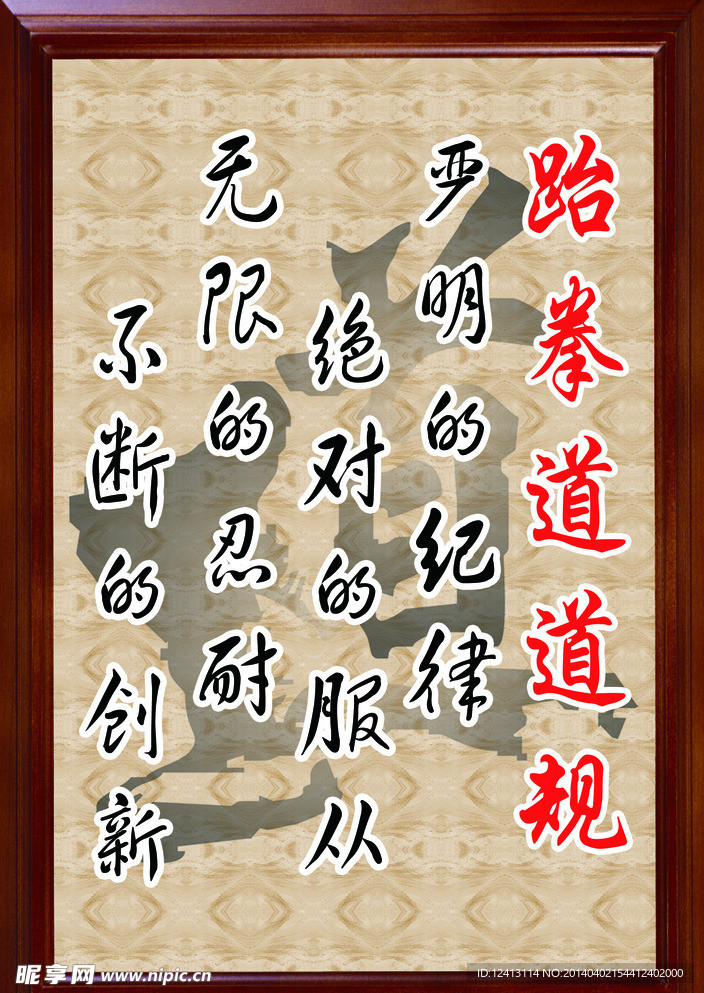 跆拳道道规
严明的纪律
绝对的服从
无限的忍耐
不断的创新
道
昵享网 www.nipic.cn
ID:12413114 NO:20140402154412402000